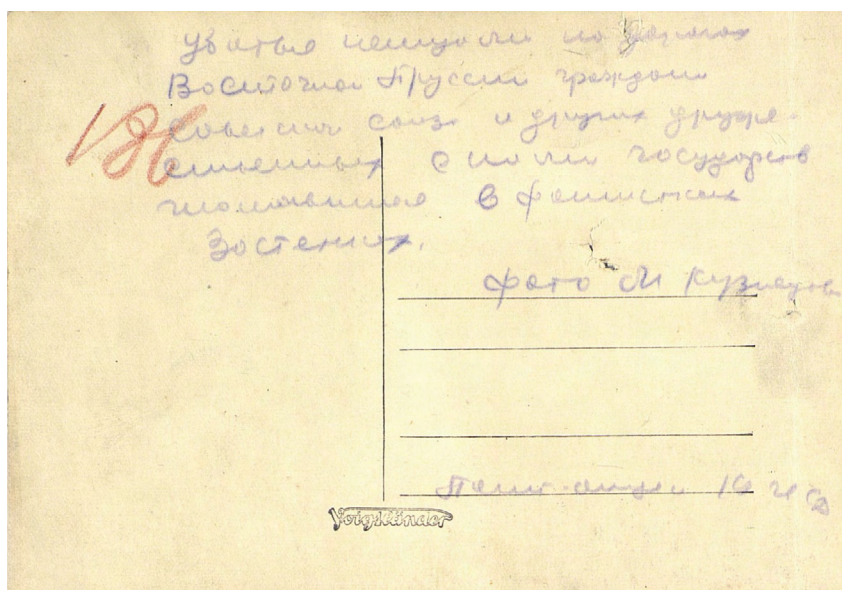 Убитые немцами на дорогах
Восточной Пруссии граждан
Советских союза и других друже-
ственных с нами государств
в фашистских
Застенках.
фото М Кузнецова
Voigtländer